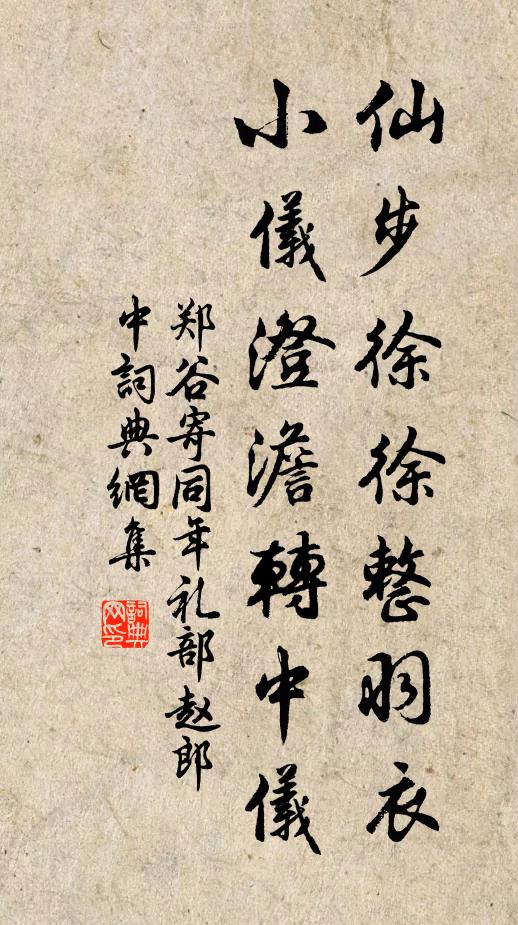 仙步徐徐整羽衣
小儀澄澹轉中儀
郑谷寄同年礼部赵郎
中詞典網集
詞典
网印